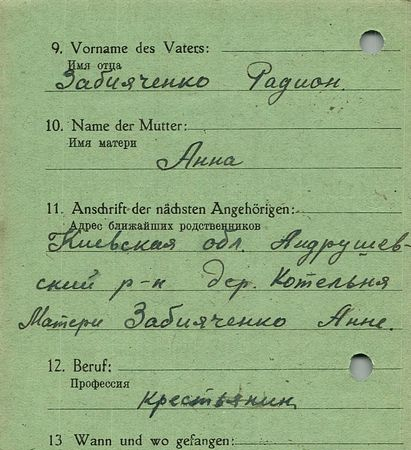 9. Vorname des Vaters:
Имя отца
Забияченко Радион.
10. Name der Mutter:
Имя матери
Анна
11. Anschrift der nächsten Angehörigen:
Адрес ближайших родственников
Киевская обл. Андрушев-
ский р-н дер. Котельня
Матери Забияченко Анне.
12. Beruf:
Профессия
крестьянин
13 Wann und wo gefangen: